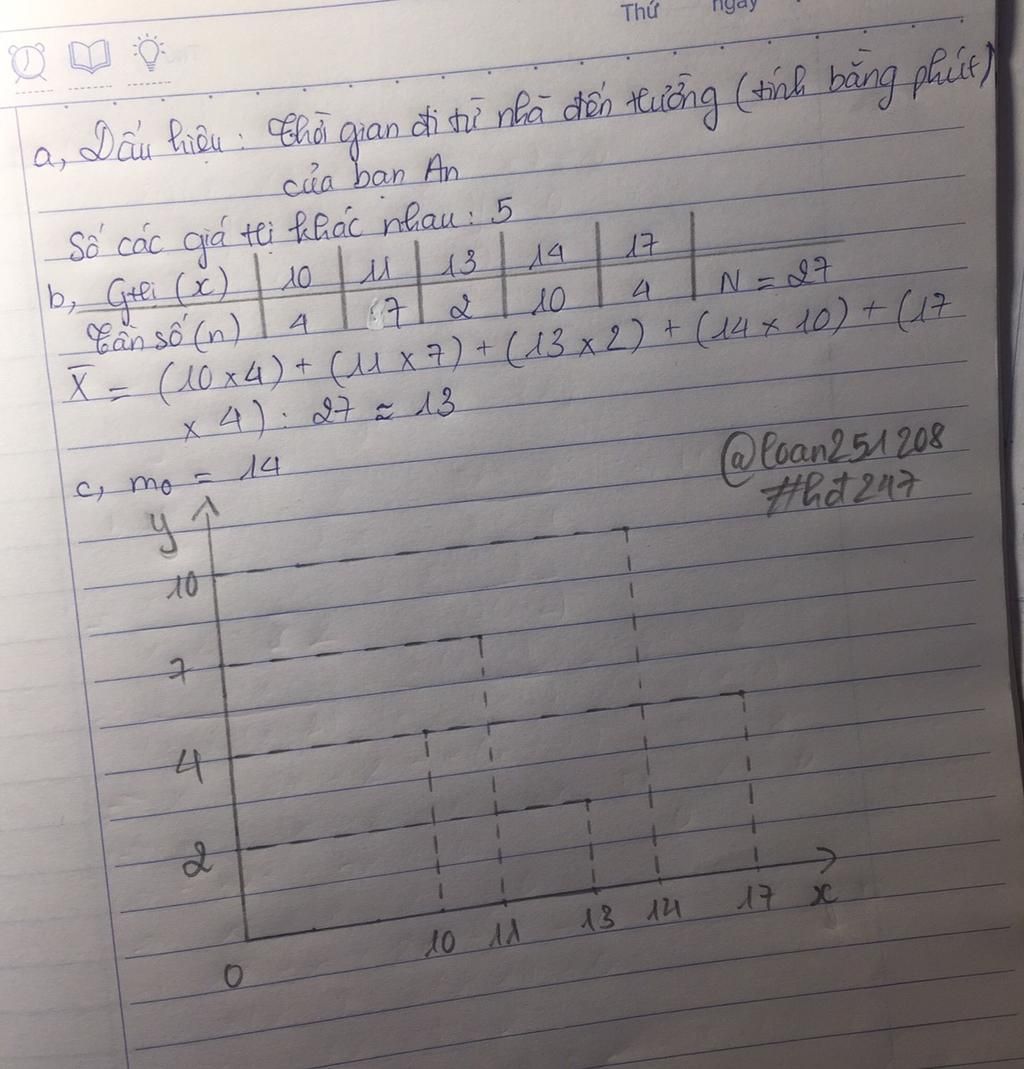 Thứ ngày
a, Dấu hiệu: Thời gian đi từ nhà đến trường (tính bằng phút)
của bạn An
Số các giá trị khác nhau: 5
b, Gtrị (x) 10 11 13 14 17
Tần số (n) 4 7 2 10 4 N = 27
X̄ = (10 x 4) + (11 x 7) + (13 x 2) + (14 x 10) + (17
x 4) : 27 ≈ 13
c, m₀ = 14
@loan251208
#hd247
y
10
7
4
2
10 11 13 14 17 x
0